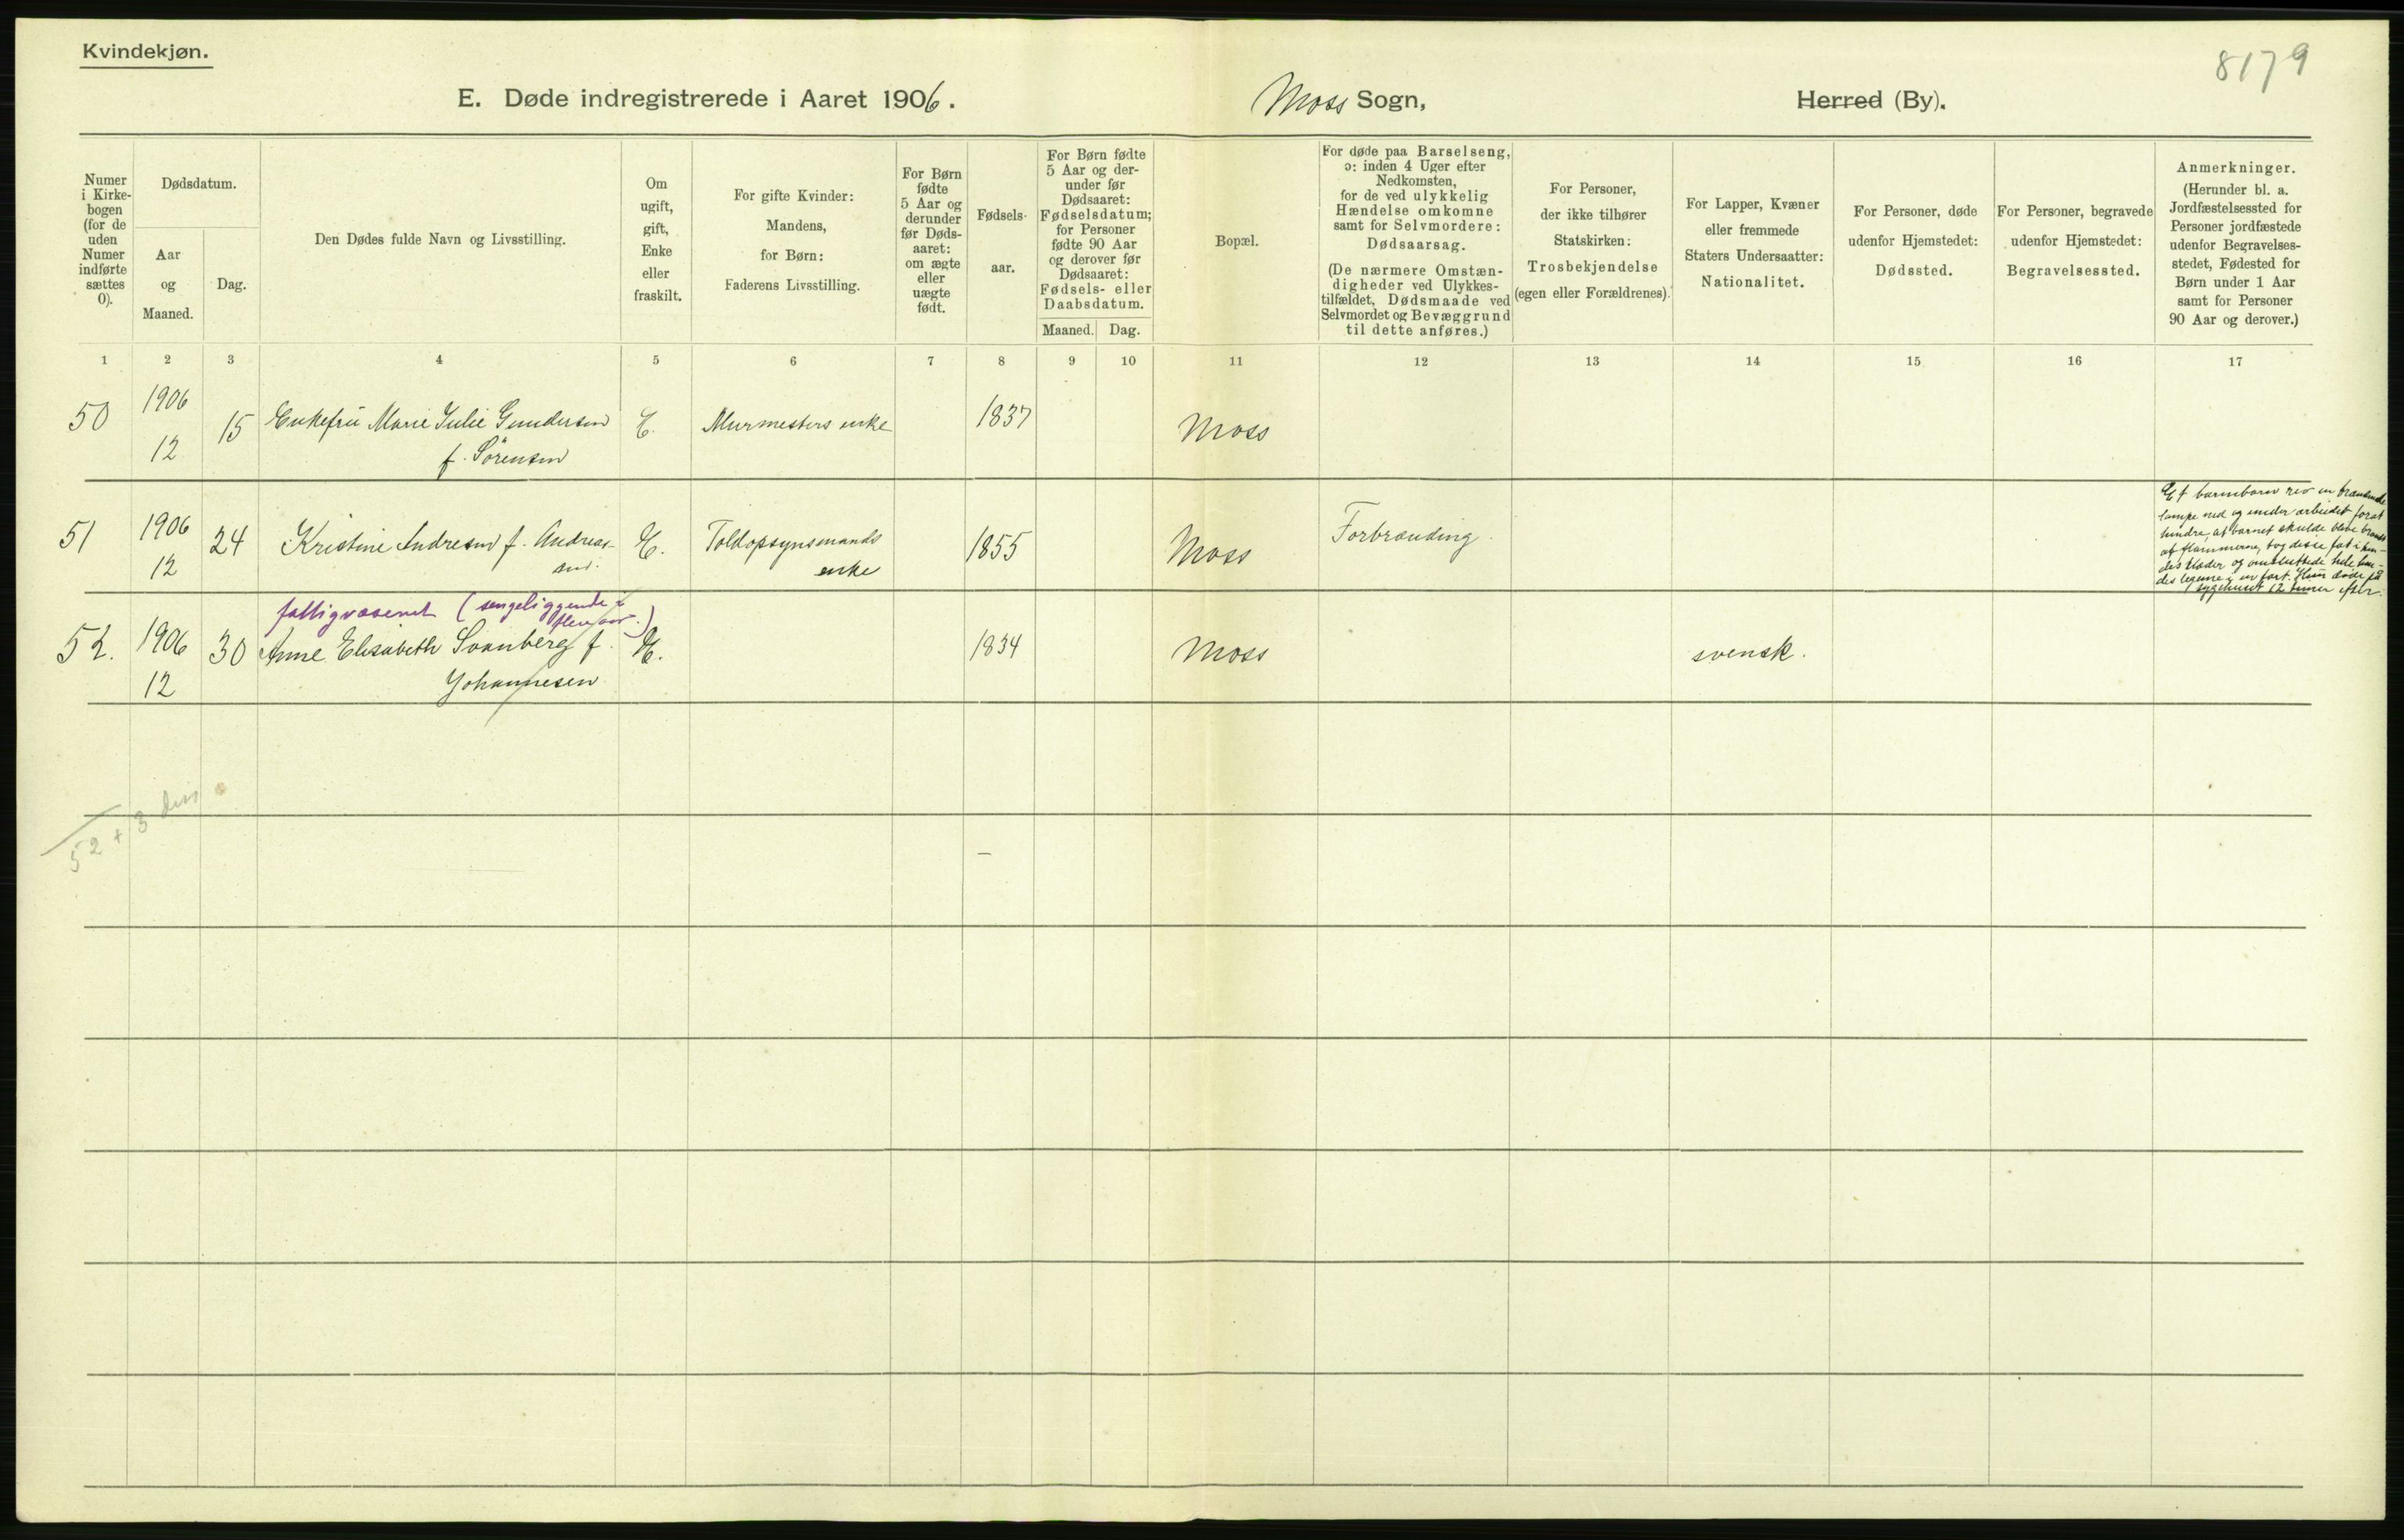 Kvindekjøn.
8179
E. Døde indregistrerede i Aaret 1906.
Moss Sogn,
Herred (By).
Numer
i Kirke-
bogen
(for de
uden
Numer
indførte
sættes
0).
Dødsdatum.
Aar
og
Maaned.
Dag.
Den Dødes fulde Navn og Livsstilling.
Om
ugift,
gift,
Enke
eller
fraskilt.
For gifte Kvinder:
Mandens,
for Børn:
Faderens Livsstilling.
For Børn
fødte
5 Aar og
derunder
før Døds-
aaret:
om ægte
eller
uægte
født.
Fødsels-
aar.
For Børn fødte
5 Aar og der-
under før
Dødsaaret:
Fødselsdatum;
for Personer
fødte 90 Aar
og derover før
Dødsaaret:
Fødsels- eller
Daabsdatum.
Maaned. Dag.
Bopæl.
For døde paa Barselseng,
ɔ: inden 4 Uger efter
Nedkomsten,
for de ved ulykkelig
Hændelse omkomne
samt for Selvmordere:
Dødsaarsag.
(De nærmere Omstæn-
digheder ved Ulykkes-
tilfældet, Dødsmaade ved
Selvmordet og Bevæggrund
til dette anføres.)
For Personer,
der ikke tilhører
Statskirken:
Trosbekjendelse
(egen eller Forældrenes).
For Lapper, Kvæner
eller fremmede
Staters Undersaatter:
Nationalitet.
For Personer, døde
udenfor Hjemstedet:
Dødssted.
For Personer, begravede
udenfor Hjemstedet:
Begravelsessted.
Anmerkninger.
(Herunder bl. a.
Jordfæstelsessted for
Personer jordfæstede
udenfor Begravelses-
stedet, Fødested for
Børn under 1 Aar
samt for Personer
90 Aar og derover.)
1 2 3 4 5 6 7 8 9 10 11 12 13 14 15 16 17
50 1906 12 15 Enkefru Marie Julie Gundersen E. Murmesters enke 1837 Moss
f. Sörensen
51 1906 12 24 Kristine Andresen f. Andreas- E. Toldopsynsmands 1855 Moss Forbrænding.
sen. enke
Et barnebarn rev en brændende
lampe ned og under arbeidet forat
hindre, at barnet skulde blive brændt
af flammerne, tog disse fat i hen-
des klæder og omsluttede hele hen-
des legeme i en fart. Hun døde på
sygehuset 12 timer efter.
fattigvæsenet (sengeliggende i
flere aar.)
52. 1906 12 30 Anne Elisabeth Svanberg f. E. 1834 Moss svensk.
Johannesen
52 + 3